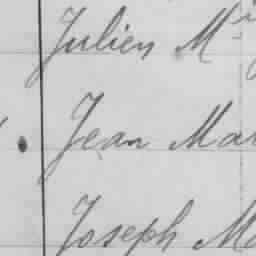 Julien M
Jean Mar
Joseph M